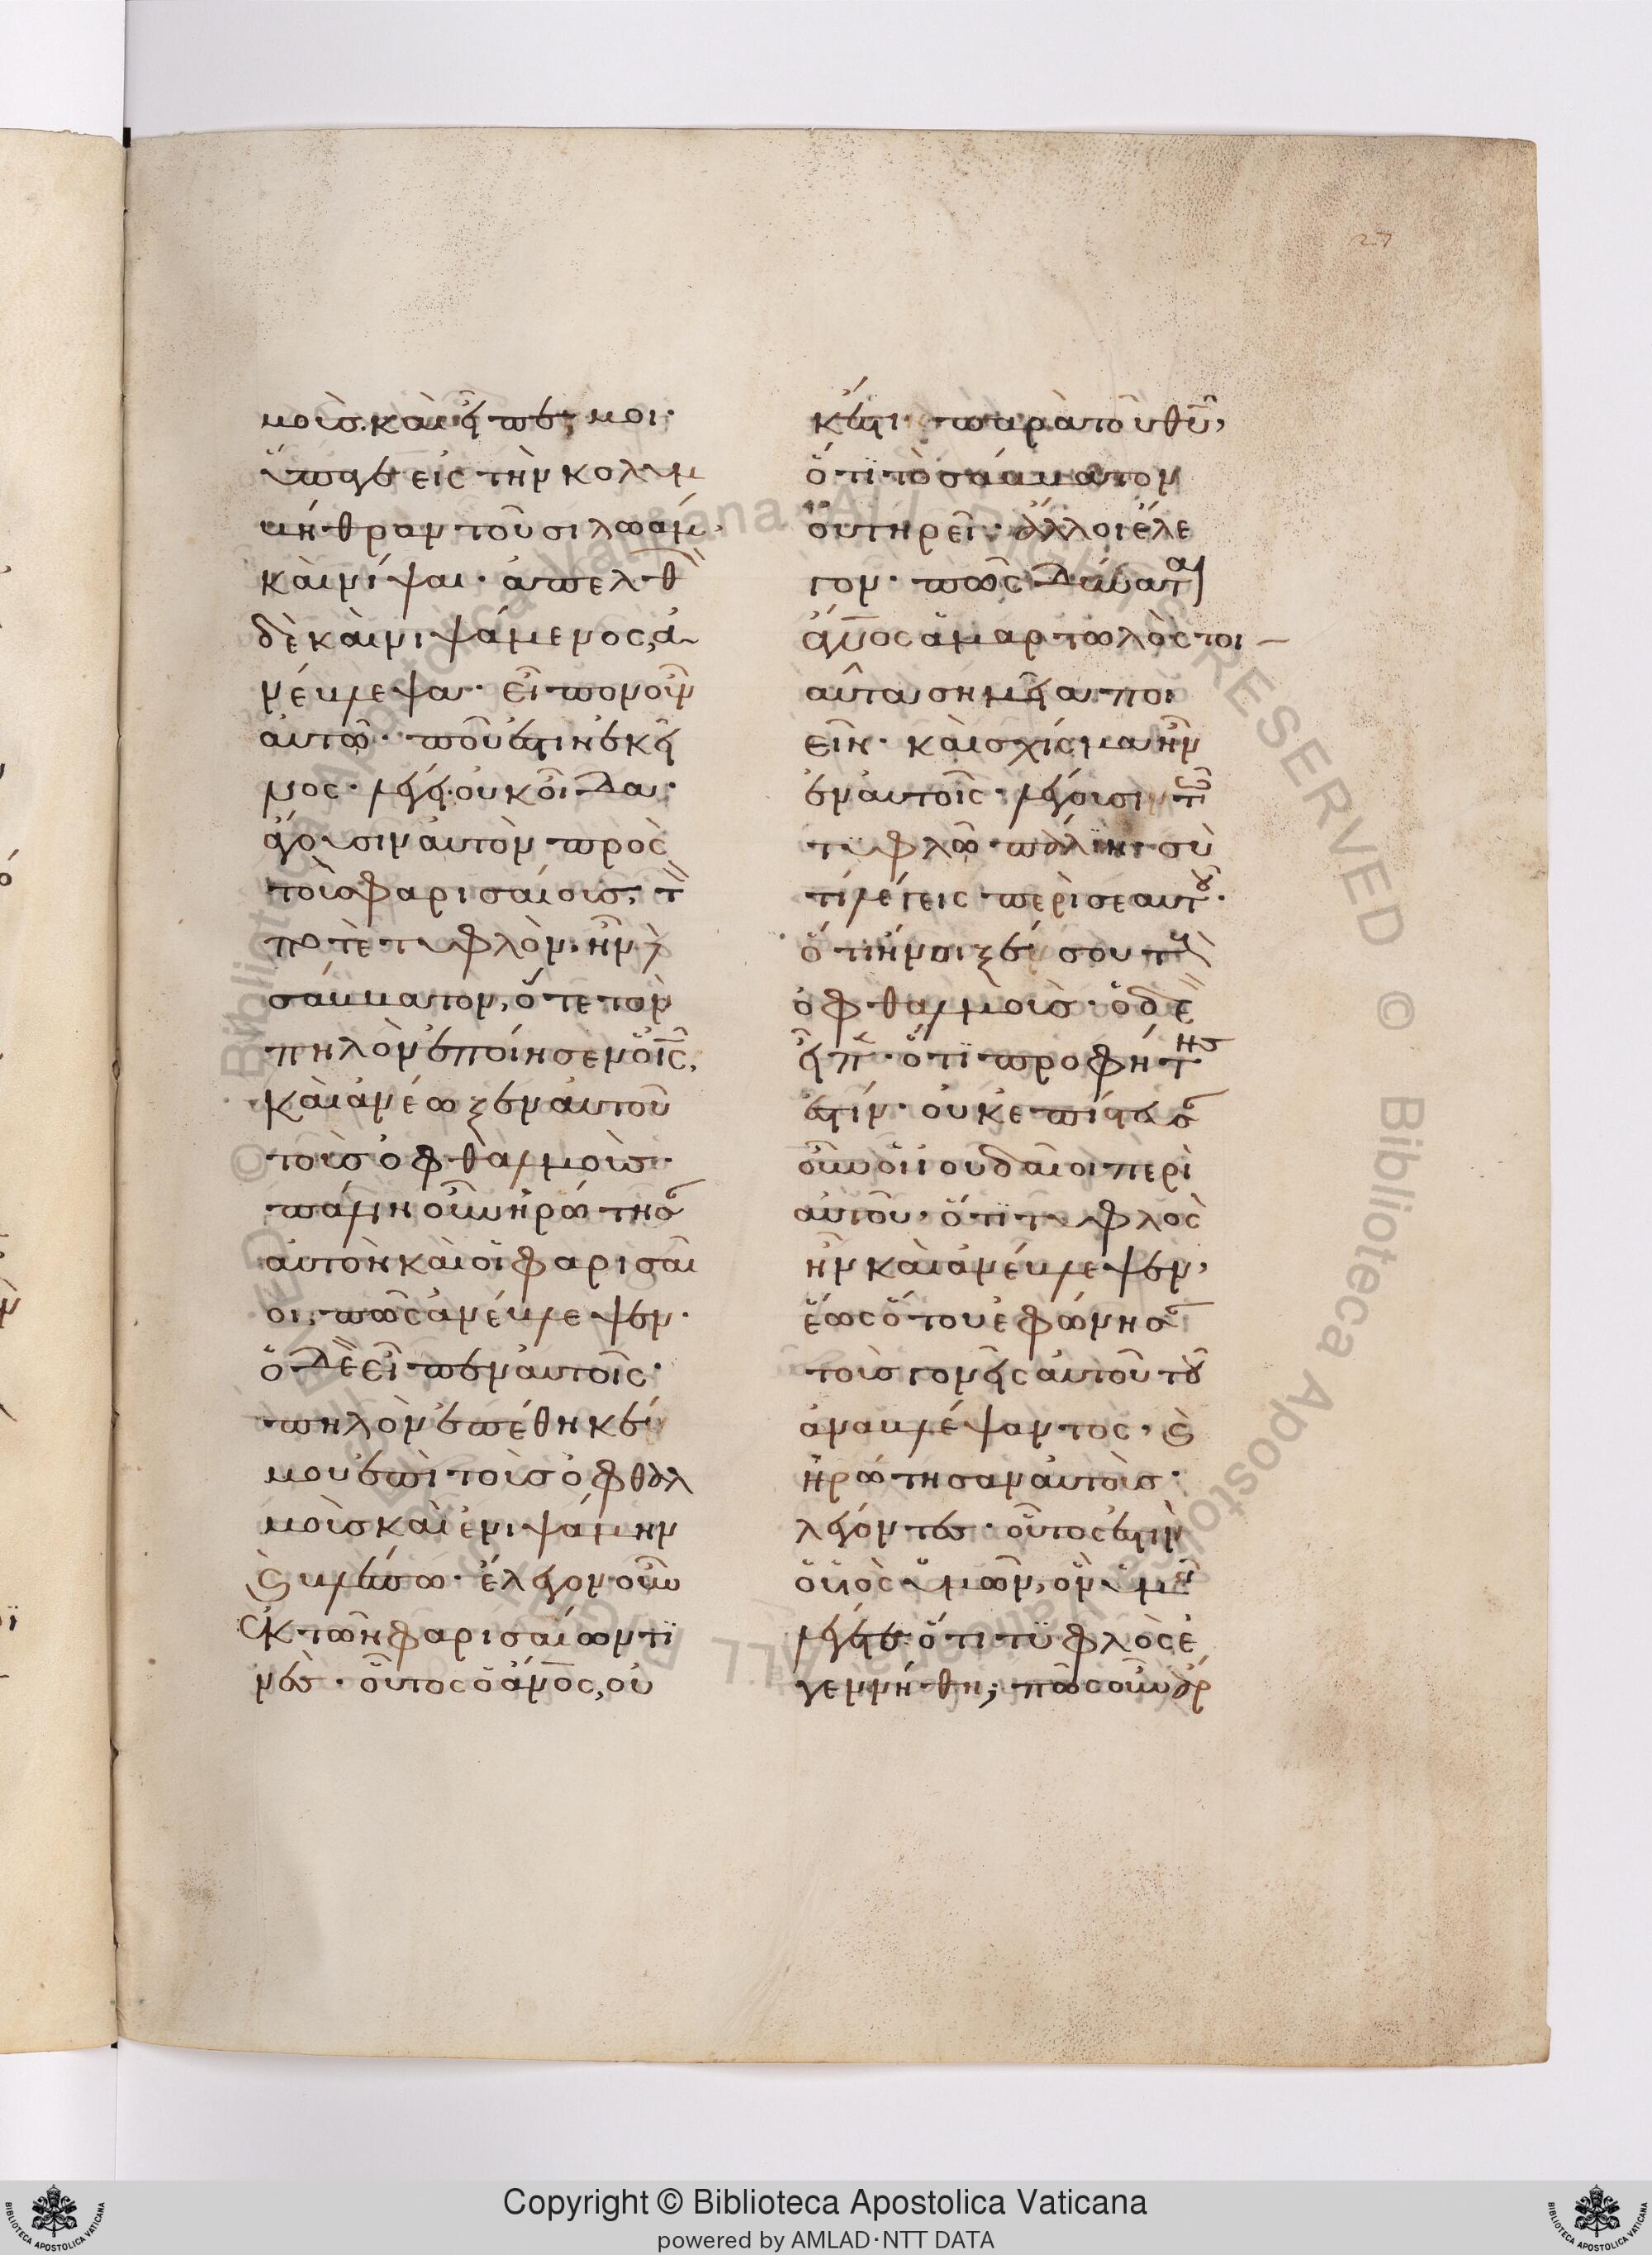 μοὺς καὶ εἶπέ μοι·
ὕπαγε εἰς τὴν κολυμ
βήθραν τοῦ σιλωάμ·
καὶ νίψαι· ἀπελθ
δὲ καὶ νιψάμενος, ἀ
νέβλεψα· εἶπον οὖν
αὐτῶ· ποῦ ἐστιν ἐκεῖ
νος· λέγει· οὐκ οἶδα·
ἄγουσιν αὐτὸν πρὸς
τοὺς φαρισαίους, τ
ποτὲ τυφλόν· ἦν δ
σάββατον, ὅτε τὸν
πηλὸν ἐποίησεν ὁ ις,
καὶ ἀνέωξεν αὐτοῦ
τοὺς ὀφθαλμούς·
πάλιν οὖν ἠρώτησ
αὐτὸν καὶ οἱ φαρισαῖ
οι, πῶς ἀνέβλεψεν·
ὁ δὲ εἶπεν αὐτοῖς·
πηλὸν ἐπέθηκέ
μου ἐπὶ τοὺς ὀφθαλ
μοὺς καὶ ἐνιψάμην
καὶ βλέπω· ἔλεγον οὖν
ἐκ τῶν φαρισαίων τι
νές· οὗτος ὁ ἀνος, οὐ
κ ἔστι παρὰ τοῦ θυ,
ὅτι τὸ σάββατον
οὐ τηρεῖ· ἄλλοι ἔλε
γον· πῶς δύναται
ανος ἁμαρτωλὸς τοι
αῦτα σημεῖα ποι
εῖν· καὶ σχίσμα ἦν
ἐν αὐτοῖς· λέγουσι τῶ
τυφλῶ πάλιν· σὺ
τί λέγεις περὶ σεαυτοῦ·
ὅτι ἤνοιξέ σου τοὺς
ὀφθαλμούς· ὁ δὲ
εἶπ· ὅτι προφήτης
ἐστίν· οὐκ ἐπίστευσ
οὖν οἱ ἰουδαῖοι περὶ
αὐτοῦ, ὅτι τυφλὸς
ἦν καὶ ἀνέβλεψεν,
ἕως ὅτου ἐφώνησ
τοὺς γονεῖς αὐτοῦ τοῦ
ἀναβλέψαντος, καὶ
ἠρώτησαν αὐτοὺς·
λέγοντες· οὗτός ἐστιν
ὁ υἱὸς ὑμῶν, ὃν ὑμεῖς
λέγετε ὅτι τυφλὸς ἐ
γεννήθη; πῶς οὖν ἄρ